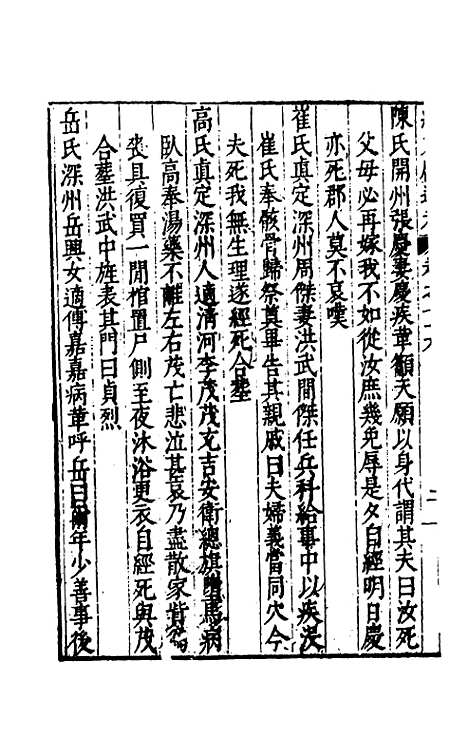 陳氏開州張慶妻慶疾革籲天願以身代謂其夫曰汝死
父母必再嫁我不如從汝庶幾免辱是夕自經明日慶
亦死郡人莫不哀嘆
崔氏真定深州周傑妻洪武間傑任兵科給事中以疾没
崔氏奉骸骨歸祭奠畢告其親戚曰夫婦義當同穴今
夫死我無生理遂經死合塟
高氏真定深州人適清河李茂茂充吉安衛總旗病
臥高奉湯藥不離左右茂亡悲泣甚哀乃盡散家貲
喪具復買一閒棺置尸側至夜沐浴更衣自經死與茂
合塟洪武中旌表其門曰貞烈
岳氏深州岳興女適傅嘉嘉病革呼岳曰爾年少善事後